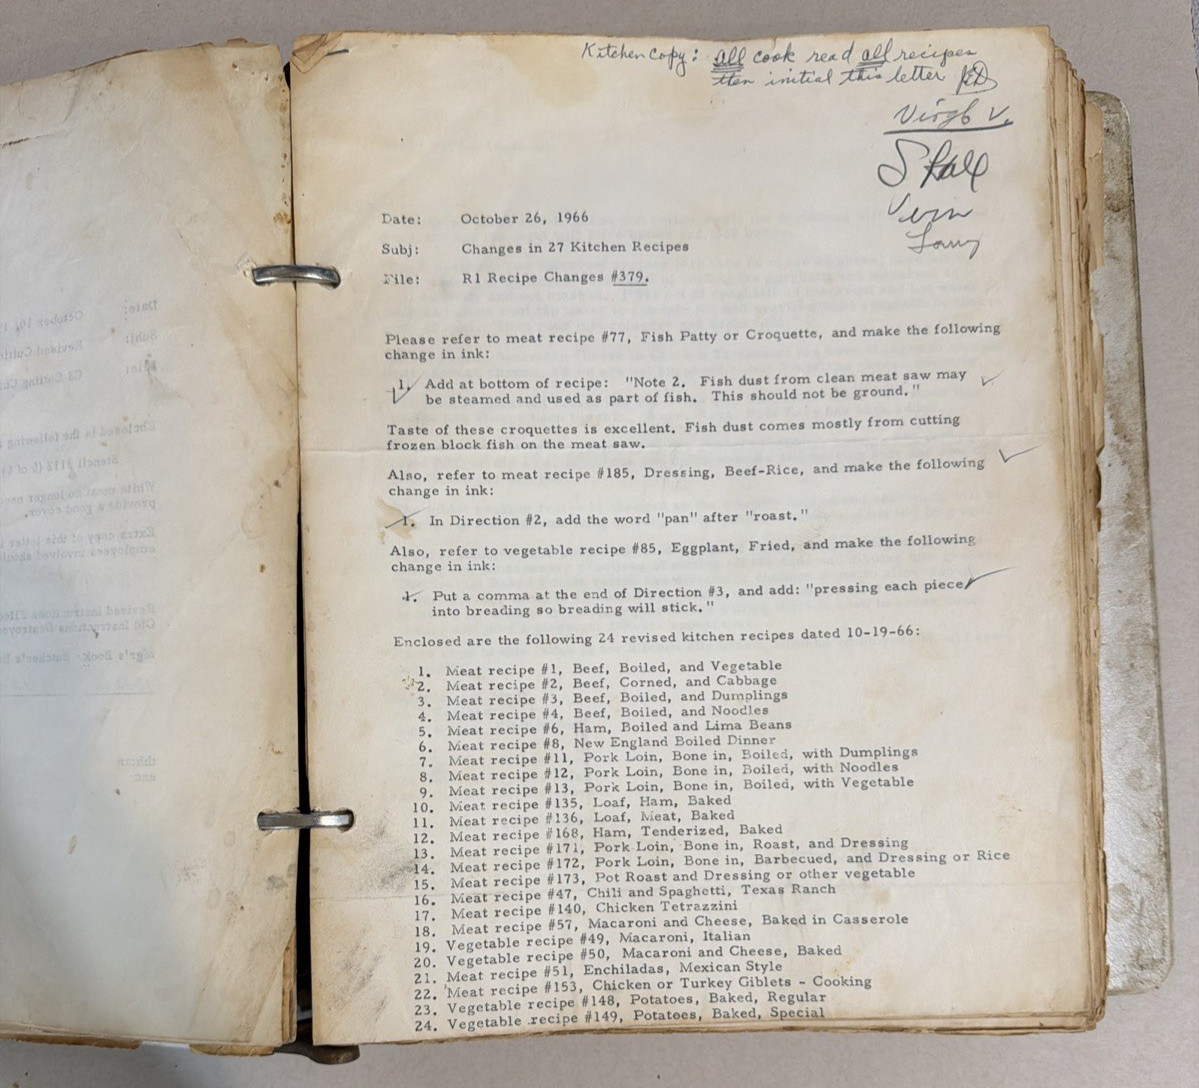 Kitchen Copy: All cook read all recipes
then initial this letter
Vern
Date: October 26, 1966
Subj: Changes in 27 Kitchen Recipes
File: R1 Recipe Changes #379.
Please refer to meat recipe #77, Fish Patty or Croquette, and make the following
change in ink:
1. Add at bottom of recipe: "Note 2. Fish dust from clean meat saw may
be steamed and used as part of fish. This should not be ground."
Taste of these croquettes is excellent. Fish dust comes mostly from cutting
frozen block fish on the meat saw.
Also, refer to meat recipe #185, Dressing, Beef-Rice, and make the following
change in ink:
1. In Direction #2, add the word "pan" after "roast."
Also, refer to vegetable recipe #85, Eggplant, Fried, and make the following
change in ink:
1. Put a comma at the end of Direction #3, and add: "pressing each piece
into breading so breading will stick."
Enclosed are the following 24 revised kitchen recipes dated 10-19-66:
1. Meat recipe #1, Beef, Boiled, and Vegetable
2. Meat recipe #2, Beef, Corned, and Cabbage
3. Meat recipe #3, Beef, Boiled, and Dumplings
4. Meat recipe #4, Beef, Boiled, and Noodles
5. Meat recipe #6, Ham, Boiled and Lima Beans
6. Meat recipe #8, New England Boiled Dinner
7. Meat recipe #11, Pork Loin, Bone in, Boiled, with Dumplings
8. Meat recipe #12, Pork Loin, Bone in, Boiled, with Noodles
9. Meat recipe #13, Pork Loin, Bone in, Boiled, with Vegetable
10. Meat recipe #135, Loaf, Ham, Baked
11. Meat recipe #136, Loaf, Meat, Baked
12. Meat recipe #168, Ham, Tenderized, Baked
13. Meat recipe #171, Pork Loin, Bone in, Roast, and Dressing
14. Meat recipe #172, Pork Loin, Bone in, Barbecued, and Dressing or Rice
15. Meat recipe #173, Pot Roast and Dressing or other vegetable
16. Meat recipe #47, Chili and Spaghetti, Texas Ranch
17. Meat recipe #140, Chicken Tetrazzini
18. Meat recipe #57, Macaroni and Cheese, Baked in Casserole
19. Vegetable recipe #49, Macaroni, Italian
20. Vegetable recipe #50, Macaroni and Cheese, Baked
21. Meat recipe #51, Enchiladas, Mexican Style
22. Meat recipe #153, Chicken or Turkey Giblets - Cooking
23. Vegetable recipe #148, Potatoes, Baked, Regular
24. Vegetable recipe #149, Potatoes, Baked, Special